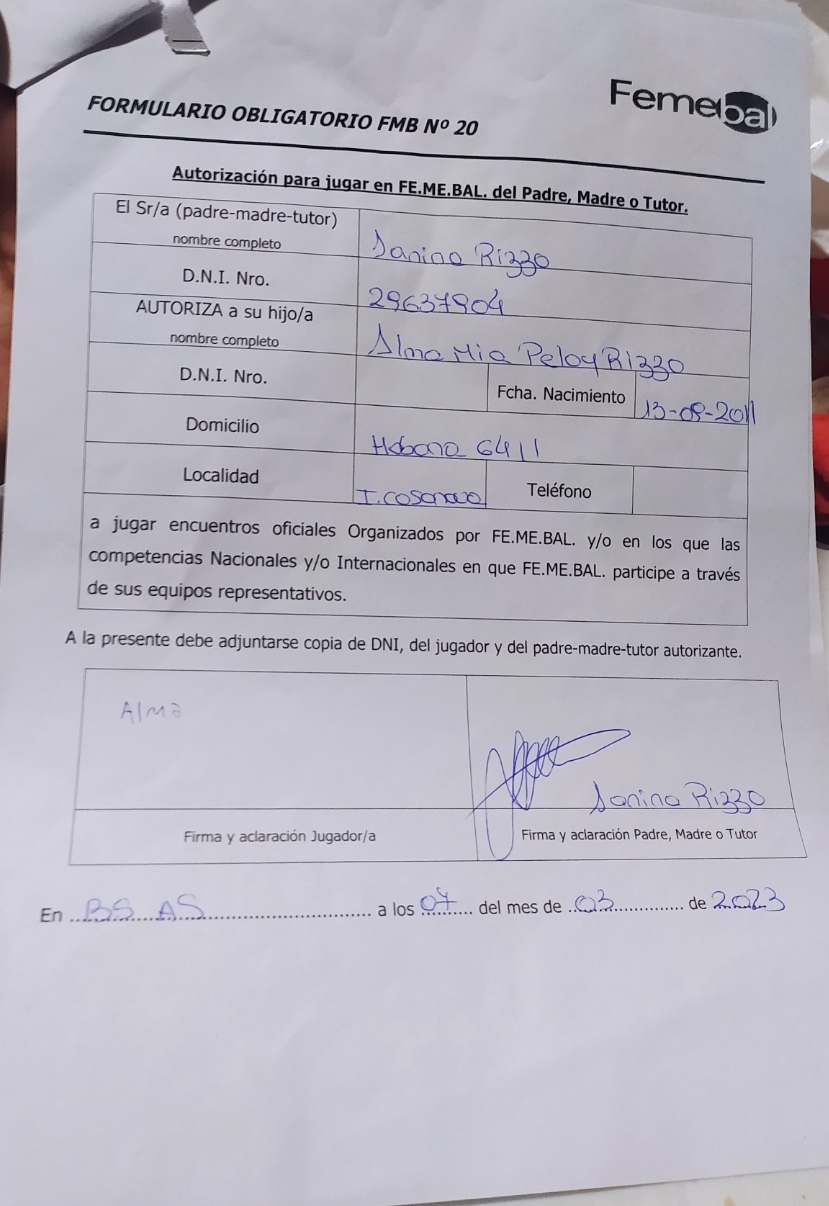 Femebal
FORMULARIO OBLIGATORIO FMB Nº 20
Autorización para jugar en FE.ME.BAL. del Padre, Madre o Tutor.
El Sr/a (padre-madre-tutor)
nombre completo
Janina Rizzo
D.N.I. Nro.
29637904
AUTORIZA a su hijo/a
nombre completo
Alma Mia Peloy Rizzo
D.N.I. Nro.
Fcha. Nacimiento
13-09-2011
Domicilio
Habana 6411
Localidad
I. Casanova
Teléfono
a jugar encuentros oficiales Organizados por FE.ME.BAL. y/o en los que las
competencias Nacionales y/o Internacionales en que FE.ME.BAL. participe a través
de sus equipos representativos.
A la presente debe adjuntarse copia de DNI, del jugador y del padre-madre-tutor autorizante.
Alma
Janina Rizzo
Firma y aclaración Jugador/a
Firma y aclaración Padre, Madre o Tutor
En BS AS a los 07 del mes de 03 de 2023